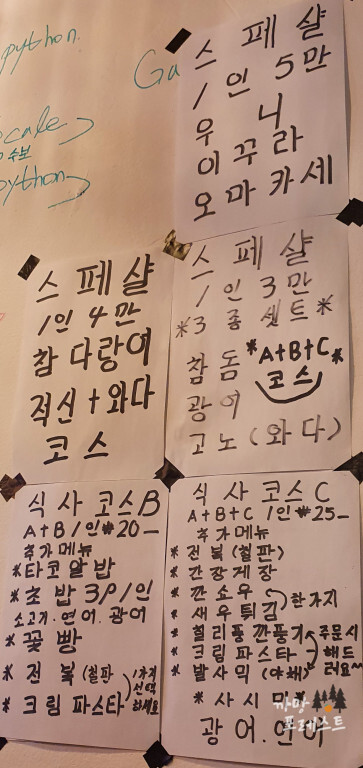 python.
Ga
cake
수보
python
스페샬
1인 5만
우니
이꾸라
오마카세
스페샬
1인 4만
참다랑어
적신+와다
코스
스페샬
1인 3만
*3종 셋트*
*A+B+C*
코스
참돔
광어
고노(와다)
식사 코스 B
A+B 1인 #20_
추가메뉴
*타코알밥
*초밥 3P/인
소고기.연어.광어
*꽃빵
*전복(철판
*크림 파스타
1가지
선택
하세요
식사 코스 C
A+B+C 1인 #25_
추가메뉴
*전복(철판)
*간장게장
*깐쇼우
*새우튀김
한가지
*칠리풍깐풍기
*크림 파스타
*발사믹(야채)
주문시
해드
려요~
*사시미*
광어.연어
까망
포레스트